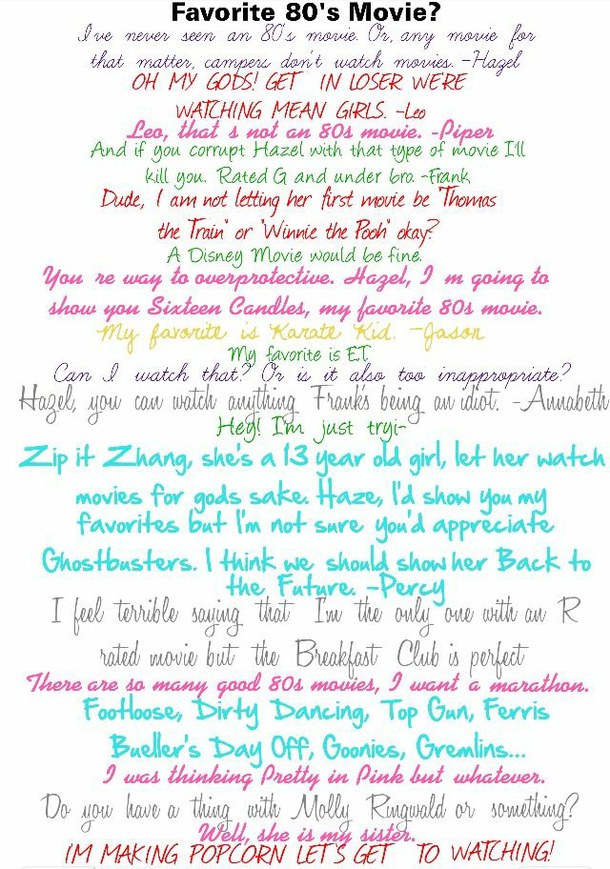 Favorite 80's Movie?
I've never seen an 80's movie. Or, any movie for
that matter, campers don't watch movies. -Hazel
OH MY GODS! GET IN LOSER WE'RE
WATCHING MEAN GIRLS. -Leo
Leo, that s not an 80s movie. -Piper
And if you corrupt Hazel with that type of movie I'll
kill you. Rated G and under bro. -Frank
Dude, I am not letting her first movie be 'Thomas
the Train' or 'Winnie the Pooh' okay?
A Disney Movie would be fine.
You re way to overprotective. Hazel, I m going to
show you Sixteen Candles, my favorite 80s movie.
My favorite is Karate Kid. -Jason
My favorite is E.T.
Can I watch that? Or is it also too inappropriate?
Hazel, you can watch anything, Franks being an idiot. -Annabeth
Hey! I'm just tryi-
Zip it Zhang, she's a 13 year old girl, let her watch
movies for gods sake. Haze, I'd show you my
favorites but I'm not sure you'd appreciate
Ghostbusters. I think we should show her Back to
the Future. -Percy
I feel terrible saying that I'm the only one with an R
rated movie but the Breakfast Club is perfect
There are so many good 80s movies, I want a marathon.
Footloose, Dirty Dancing, Top Gun, Ferris
Bueller's Day Off, Goonies, Gremlins...
I was thinking Pretty in Pink but whatever.
Do you have a thing with Molly Ringwald or something?
Well, she is my sister.
IM MAKING POPCORN LET'S GET TO WATCHING!